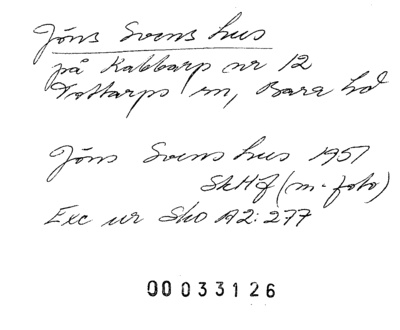 Jöns Svens hus
på Kabbarp nr 12
Tottarps sn, Bara hd
Jöns Svens hus 1951
SkHf (m. foto)
Exc ur Sko A2: 277
00033126